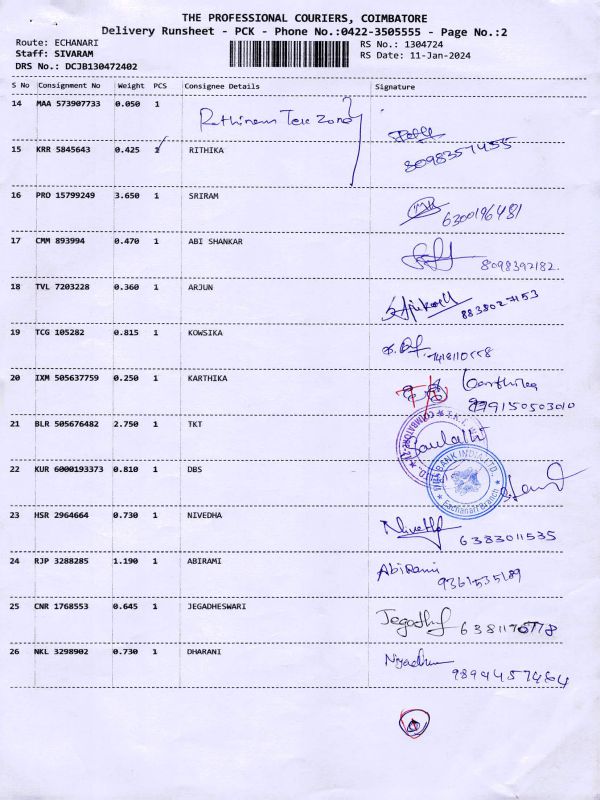 THE PROFESSIONAL COURIERS, COIMBATORE
Delivery Runsheet - PCK - Phone No.:0422-3505555 - Page No.:2
Route: ECHANARI RS No.: 1304724
Staff: SIVARAM RS Date: 11-Jan-2024
DRS No.: DCJB130472402
S No Consignment No Weight PCS Consignee Details Signature
14 MAA 573907733 0.050 1
15 KRR 5845643 0.425 1 RITHIKA 8098357455
16 PRO 15799249 3.650 1 SRIRAM 6300196481
17 CMM 893994 0.470 1 ABI SHANKAR 8098392182.
18 TVL 7203228 0.360 1 ARJUN
19 TCG 105282 0.815 1 KOWSIKA
20 IXM 505637759 0.250 1 KARTHIKA
21 BLR 505676482 2.750 1 TKT
22 KUR 6000193373 0.810 1 DBS
BANK INDIA LTD.
Eachanari Branch
23 HSR 2964664 0.730 1 NIVEDHA 6383011535
24 RJP 3288285 1.190 1 ABIRAMI Abirami
25 CNR 1768553 0.645 1 JEGADHESWARI
26 NKL 3298902 0.730 1 DHARANI 9894457464